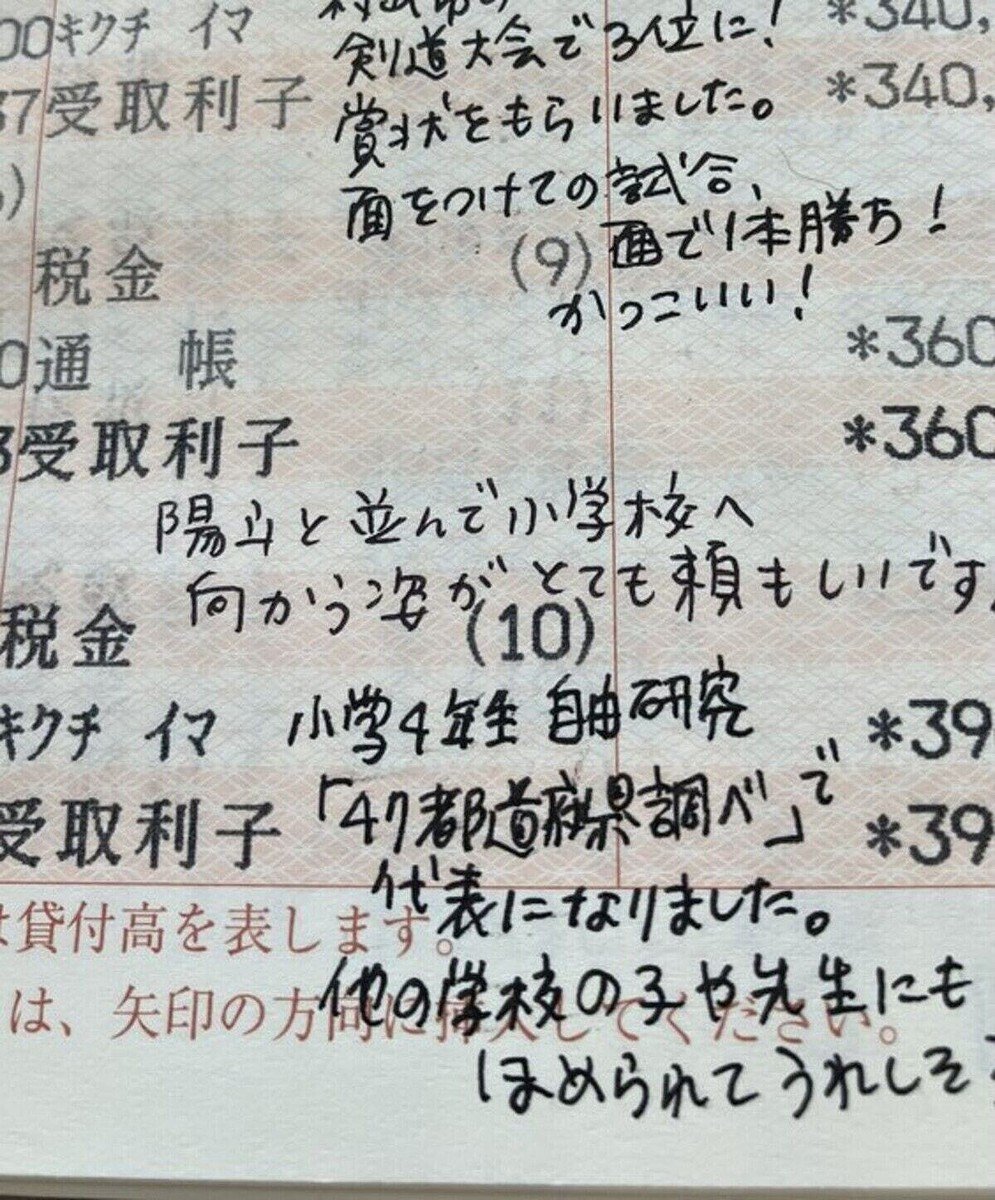 00キクチ イマ
*340,
剣道大会で3位に!
37受取利子
*340,
賞状をもらいました。
面をつけての試合、
面で1本勝ち!
税金
(9)
かっこいい!
0通 帳
*360
3受取利子
*360
陽斗と並んで小学校へ
向かう姿がとても頼もしいです
税金
(10)
キクチ イマ
小学4年生 自由研究
*39
受取利子
「47都道府県調べ」で
*39
代表になりました。
は貸付高を表します。
他の学校の子や先生にも
は、矢印の方向に挿入してください。
ほめられてうれしそ